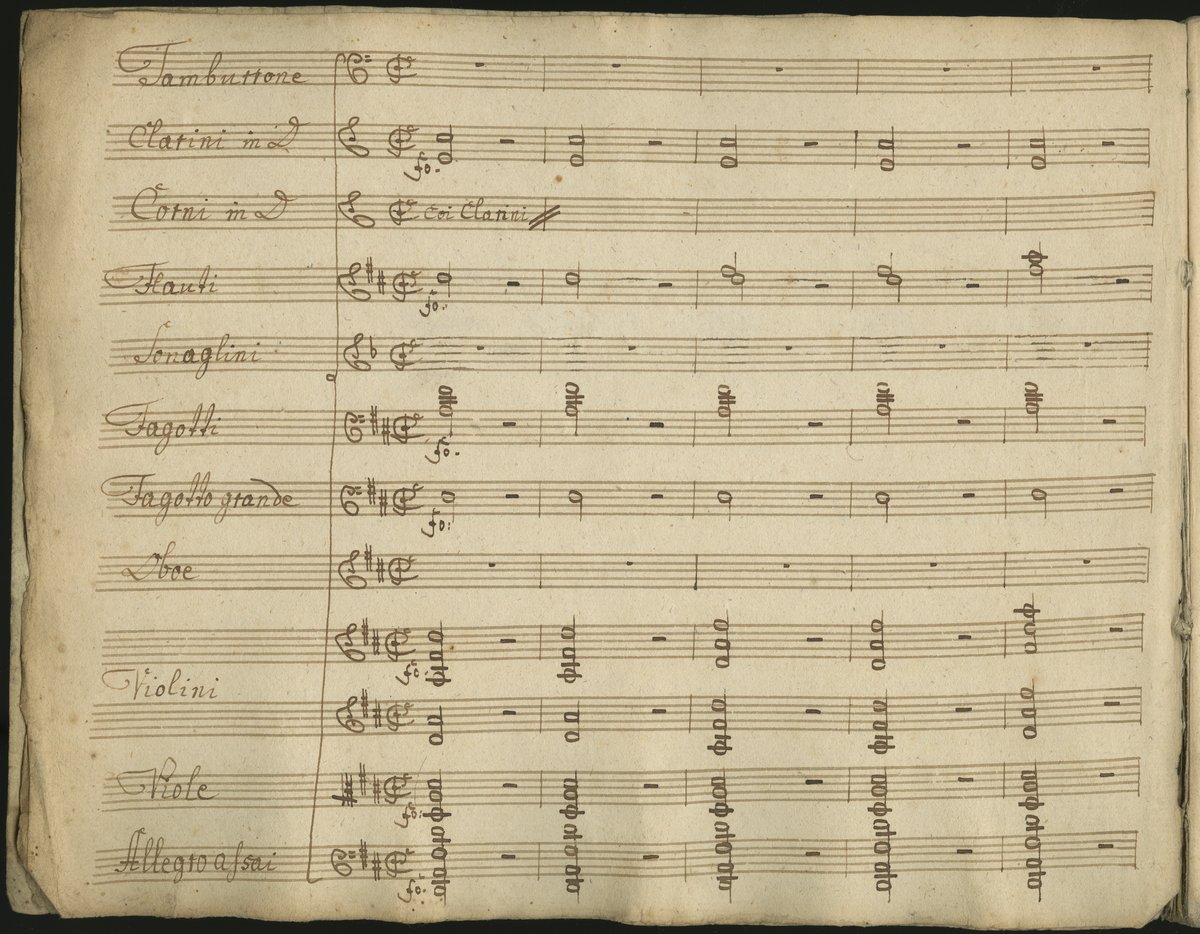 Tamburrone
Clarini in D
fo.
Corni in D Coi Clarini
Flauti
fo.
Sonaglini
Fagotti
fo.
Fagotto grande
fo:
Oboe
fo:
Violini
Viole
fo:
Allegro assai
fo: